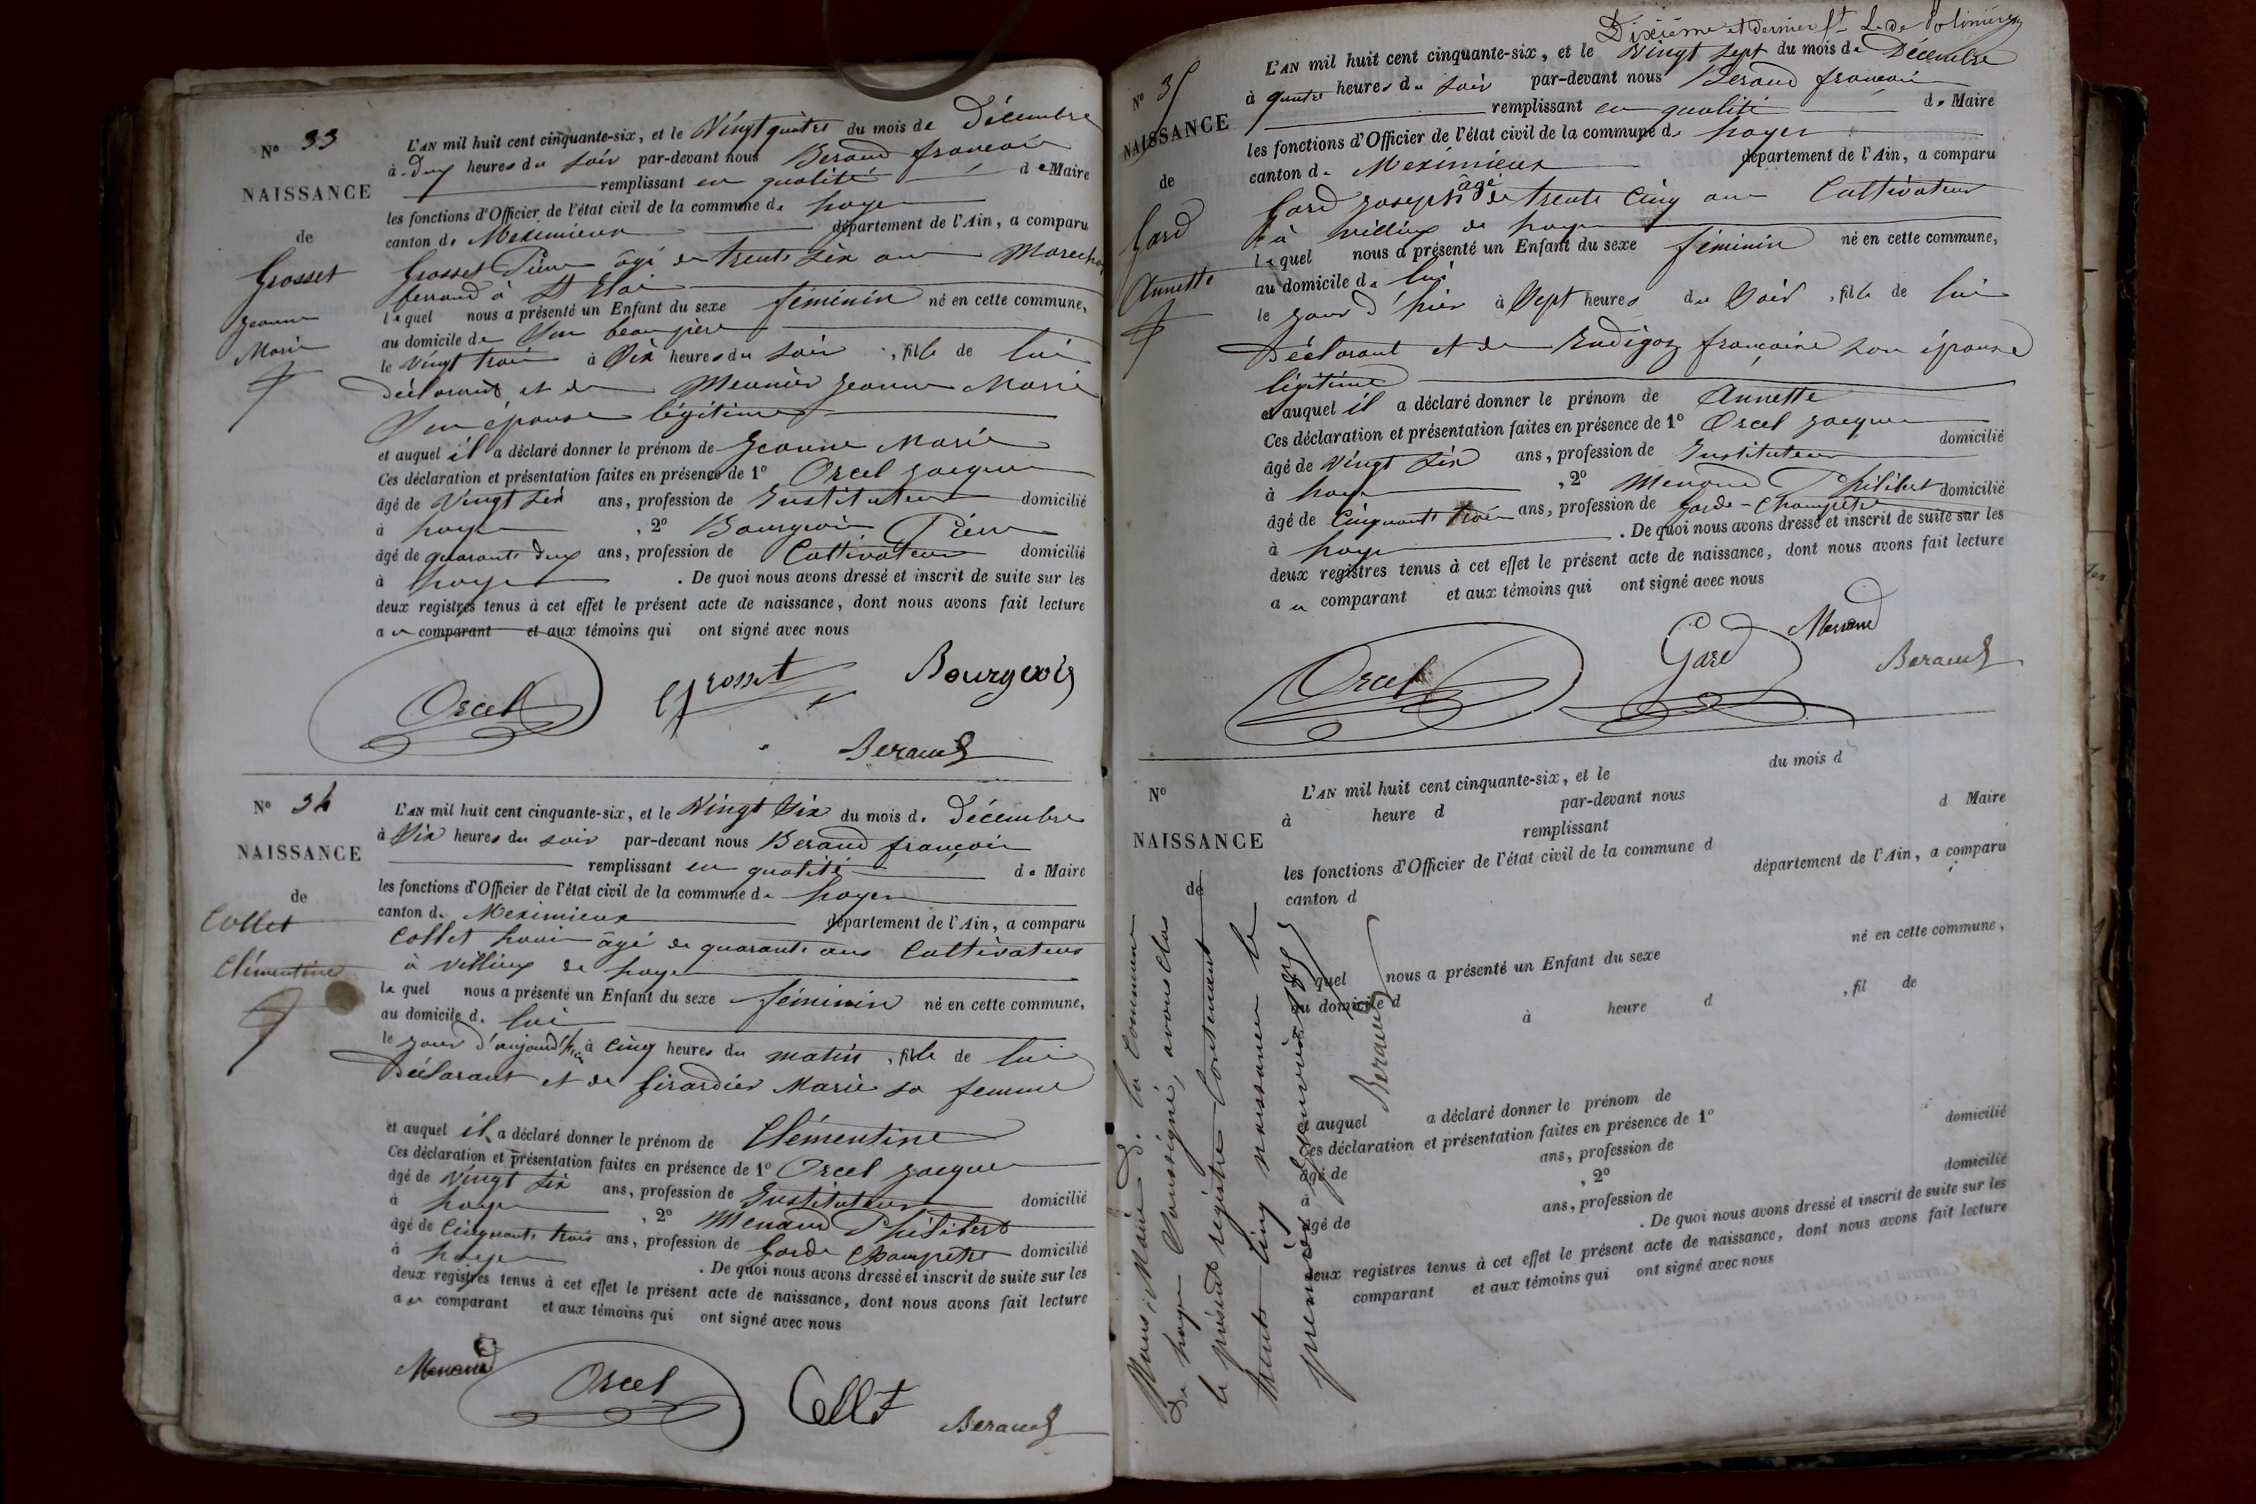 N° 33
NAISSANCE
de
Grosset
Jeanne
Marie
L'AN mil huit cent cinquante-six, et le Vingt quatre du mois de Décembre
à deux heures du soir par-devant nous Beraud françois
remplissant en qualité de Maire
les fonctions d'Officier de l'état civil de la commune de
canton de Meximieux département de l'Ain, a comparu
Grosset Pierre âgé de trente six ans Marechal
ferrand à St Eloi
lequel nous a présenté un Enfant du sexe féminin né en cette commune,
au domicile de Son beau père
le Vingt trois à Six heures du soir, fille de lui
Déclarant et de Meunier Jeanne Marie
Son épouse légitime
et auquel il a déclaré donner le prénom de Jeanne Marie
Ces déclaration et présentation faites en présence de 1° Orcel Jacques
âgé de Vingt six ans, profession de Instituteur domicilié
à , 2° Bourgeois Pierre
âgé de quarante deux ans, profession de Cultivateur domicilié
à . De quoi nous avons dressé et inscrit de suite sur les
deux registres tenus à cet effet le présent acte de naissance, dont nous avons fait lecture
au comparant et aux témoins qui ont signé avec nous
Orcel Grosset Bourgeois
Beraud
N° 34
NAISSANCE
de
Collet
Clémentine
L'AN mil huit cent cinquante-six, et le Vingt Six du mois de Décembre
à Six heures du soir par-devant nous Beraud françois
remplissant en qualité de Maire
les fonctions d'Officier de l'état civil de la commune de
canton de Meximieux département de l'Ain, a comparu
Collet âgé de quarante ans Cultivateur
à Villieux de
lequel nous a présenté un Enfant du sexe féminin né en cette commune,
au domicile de lui
le jour d'aujourd'hui à cinq heures du matin, fille de lui
Déclarant et de Girardier Marie sa femme
et auquel il a déclaré donner le prénom de Clémentine
Ces déclaration et présentation faites en présence de 1° Orcel Jacques
âgé de Vingt six ans, profession de Instituteur domicilié
à , 2° Menand Philibert
âgé de Cinquante trois ans, profession de Garde Champetre domicilié
à . De quoi nous avons dressé et inscrit de suite sur les
deux registres tenus à cet effet le présent acte de naissance, dont nous avons fait lecture
au comparant et aux témoins qui ont signé avec nous
Menand Orcel Collet Beraud
Dixième et dernier
N° 35
NAISSANCE
de
Gard
Annette
L'AN mil huit cent cinquante-six, et le Vingt sept du mois de Décembre
à quatre heures du soir par-devant nous Beraud françois
remplissant en qualité de Maire
les fonctions d'Officier de l'état civil de la commune de
canton de Meximieux département de l'Ain, a comparu
Gard Joseph âgé de trente cinq ans Cultivateur
à Villieux de
lequel nous a présenté un Enfant du sexe féminin né en cette commune,
au domicile de lui
le jour d'hier à Sept heures du Soir, fille de lui
Déclarant et de françoise son épouse
légitime
et auquel il a déclaré donner le prénom de Annette
Ces déclaration et présentation faites en présence de 1° Orcel Jacques
âgé de Vingt Six ans, profession de Instituteur domicilié
à , 2° Menand Philibert domicilié
âgé de Cinquante trois ans, profession de Garde-Champetre
à . De quoi nous avons dressé et inscrit de suite sur les
deux registres tenus à cet effet le présent acte de naissance, dont nous avons fait lecture
au comparant et aux témoins qui ont signé avec nous
Orcel Gard Menand Beraud
N°
NAISSANCE
de
L'AN mil huit cent cinquante-six, et le du mois d
à heure d par-devant nous
remplissant d Maire
les fonctions d'Officier de l'état civil de la commune d
canton d département de l'Ain, a comparu
quel nous a présenté un Enfant du sexe né en cette commune,
au domicile d
à heure d , fil de
auquel a déclaré donner le prénom de
Ces déclaration et présentation faites en présence de 1°
âgé de ans, profession de domicilié
à , 2°
âgé de ans, profession de domicilié
. De quoi nous avons dressé et inscrit de suite sur les
deux registres tenus à cet effet le présent acte de naissance, dont nous avons fait lecture
comparant et aux témoins qui ont signé avec nous
Nous Maire de la Commune
de Soussigné, avons Clos
le présent registre Contenant
trente Cinq naissances le
premier Janvier
Beraud